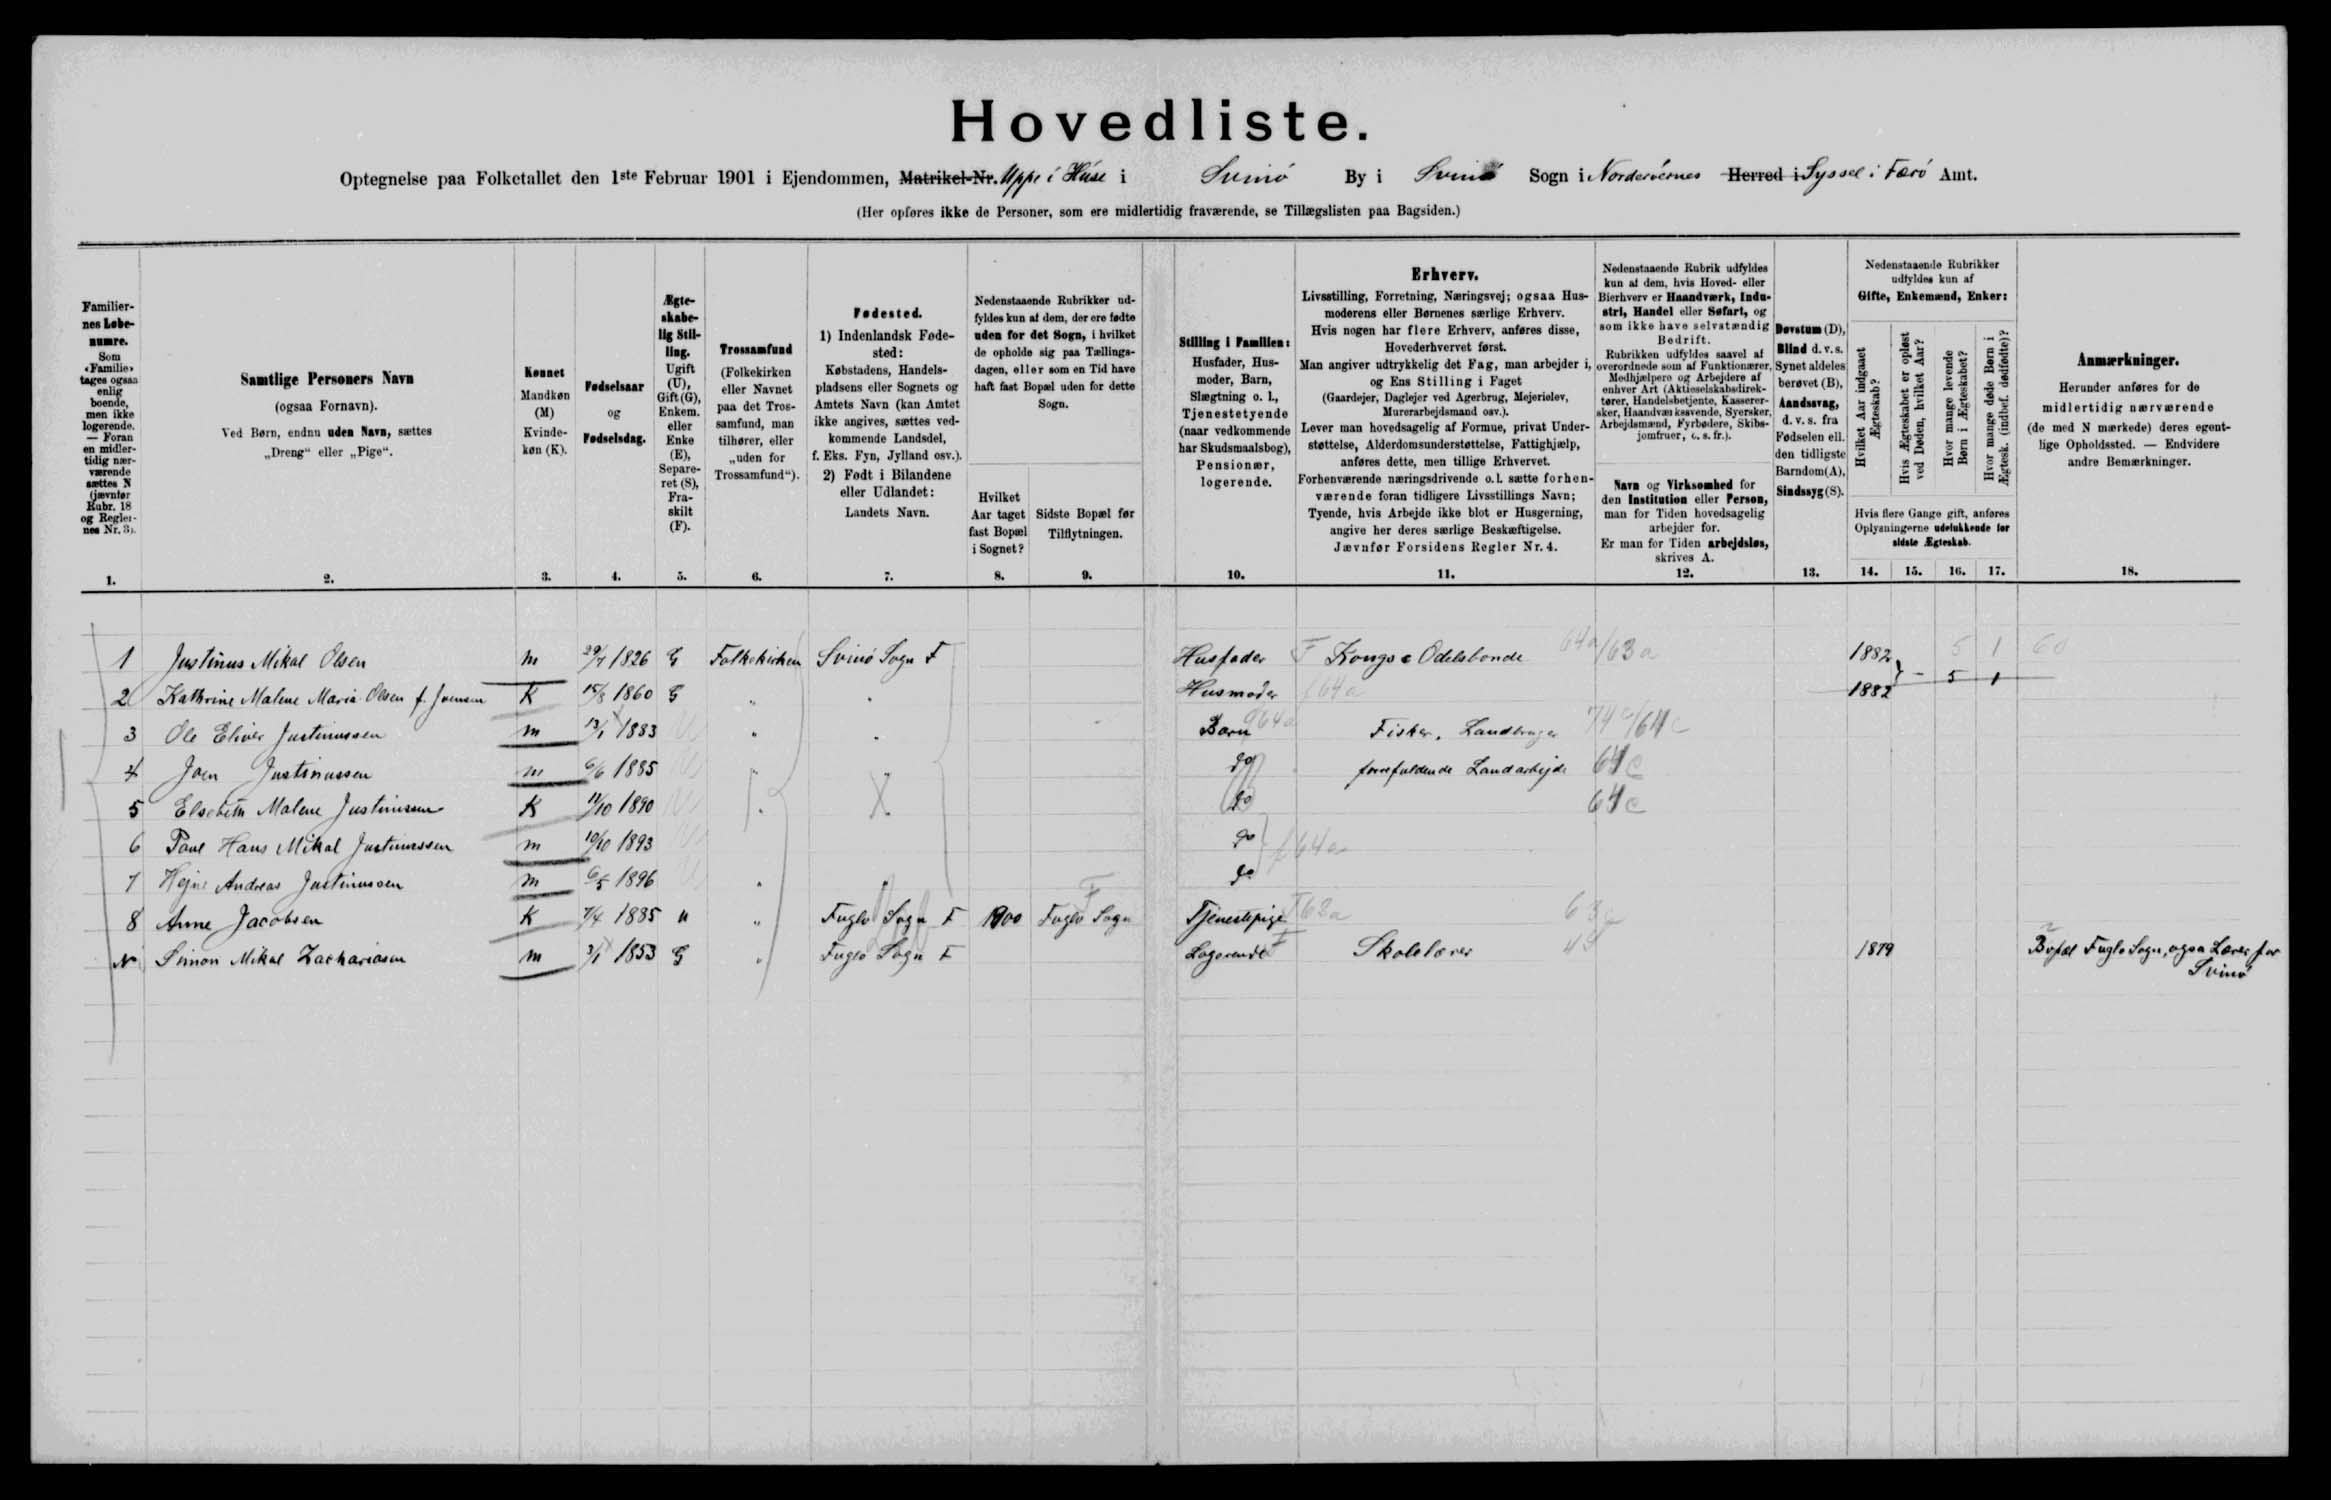 Hovedliste.
Optegnelse paa Folketallet den 1ste Februar 1901 i Ejendommen, Matrikel-Nr. Uppi i Húse i Svinö By i Svinö Sogn i Norderöernes Herred i Syssel i Færö Amt.
(Her opføres ikke de Personer, som ere midlertidig fraværende, se Tillægslisten paa Bagsiden.)
Familier-
nes Løbe-
numre.
Som
«Familie»
tages ogsaa
enlig
boende,
men ikke
logerende.
— Foran
en midler-
tidig nær-
værende
sættes N
(jævnfør
Rubr. 18
og Regler-
nes Nr. 3).
1.
Samtlige Personers Navn
(ogsaa Fornavn).
Ved Børn, endnu uden Navn, sættes
„Dreng“ eller „Pige“.
2.
Kønnet
Mandkøn
(M)
Kvinde-
køn (K).
3.
Fødselsaar
og
Fødselsdag.
4.
Ægte-
skabe-
lig Stil-
ling.
Ugift
(U),
Gift (G),
Enkem.
eller
Enke
(E),
Separe-
ret (S),
Fra-
skilt
(F).
5.
Trossamfund
(Folkekirken
eller Navnet
paa det Tros-
samfund, man
tilhører, eller
„uden for
Trossamfund“).
6.
Fødested.
1) Indenlandsk Føde-
sted:
Købstadens, Handels-
pladsens eller Sognets og
Amtets Navn (kan Amtet
ikke angives, sættes ved-
kommende Landsdel,
f. Eks. Fyn, Jylland osv.).
2) Født i Bilandene
eller Udlandet:
Landets Navn.
7.
Nedenstaaende Rubrikker ud-
fyldes kun af dem, der ere fødte
uden for det Sogn, i hvilket
de opholde sig paa Tællings-
dagen, eller som en Tid have
haft fast Bopæl uden for dette
Sogn.
Hvilket
Aar taget
fast Bopæl
i Sognet?
8.
Sidste Bopæl før
Tilflytningen.
9.
Stilling i Familien:
Husfader, Hus-
moder, Barn,
Slægtning o. l.,
Tjenestetyende
(naar vedkommende
har Skudsmaalsbog),
Pensionær,
logerende.
10.
Erhverv.
Livsstilling, Forretning, Næringsvej; ogsaa Hus-
moderens eller Børnenes særlige Erhverv.
Hvis nogen har flere Erhverv, anføres disse,
Hovederhvervet først.
Man angiver udtrykkelig det Fag, man arbejder i,
og Ens Stilling i Faget
(Gaardejer, Daglejer ved Agerbrug, Mejerielev,
Murerarbejdsmand osv.).
Lever man hovedsagelig af Formue, privat Under-
støttelse, Alderdomsunderstøttelse, Fattighjælp,
anføres dette, men tillige Erhvervet.
Forhenværende næringsdrivende o.l. sætte forhen-
værende foran tidligere Livsstillings Navn;
Tyende, hvis Arbejde ikke blot er Husgerning,
angive her deres særlige Beskæftigelse.
Jævnfør Forsidens Regler Nr. 4.
11.
Nedenstaaende Rubrik udfyldes
kun af dem, hvis Hoved- eller
Bierhverv er Haandværk, Indu-
stri, Handel eller Søfart, og
som ikke have selvstændig
Bedrift.
Rubrikken udfyldes saavel af
overordnede som af Funktionærer,
Medhjælpere og Arbejdere af
enhver Art (Aktieselskabsdirek-
tører, Handelsbetjente, Kasserer-
sker, Haandværkssvende, Syersker,
Arbejdsmænd, Fyrbødere, Skibs-
jomfruer, o. s. fr.).
Navn og Virksomhed for
den Institution eller Person,
man for Tiden hovedsagelig
arbejder for.
Er man for Tiden arbejdsløs,
skrives A.
12.
Døvstum (D),
Blind d. v. s.
Synet aldeles
berøvet (B),
Aandssvag,
d. v. s. fra
Fødselen ell.
den tidligste
Barndom (A),
Sindssyg (S).
13.
Nedenstaaende Rubrikker
udfyldes kun af
Gifte, Enkemænd, Enker:
Hvilket Aar indgaaet
Ægteskab?
Hvis Ægteskabet er opløst
ved Døden, hvilket Aar?
Hvor mange levende
Børn i Ægteskabet?
Hvor mange døde Børn i
Ægtesk. (indbef. dødfødte)?
Hvis flere Gange gift, anføres
Oplysningerne udelukkende for
sidste Ægteskab.
14. 15. 16. 17.
Anmærkninger.
Herunder anføres for de
midlertidig nærværende
(de med N mærkede) deres egent-
lige Opholdssted. — Endvidere
andre Bemærkninger.
18.
1 Justinus Mikal Olsen m 29/7 1826 G Folkekirken Svinö Sogn F Husfader F Konge & Odelsbonde 64a/63a 1882 5 1 60
2 Kathrine Malene Maria Olsen f. Joensen K 15/8 1860 G " " Husmoder f64a 1882 - 5 1
3 Ole Eliver Justinussen m 13/1 1883 U " " Barn 64a Fisker, Landbruger 74c/64c
4 Joen Justinussen m 6/6 1885 U " " do forrefaldende Landarbejde 64c
5 Elsebeth Malene Justinussen K 11/10 1890 U " " do 64c
6 Poul Hans Mikal Justinussen m 10/10 1893 U do f64a
7 Hejne Andreas Justinussen m 6/5 1896 U " " do
8 Anne Jacobsen K 7/4 1885 u " Fuglö Sogn F 1900 Fuglö Sogn F Tjenestepige 63a
N Simon Mikal Zachariasen m 3/1 1853 G " Fuglö Sogn F Logerende F Skolelærer 1879 Bopæl Fuglö Sogn, ogsa Lærer for
Svinö